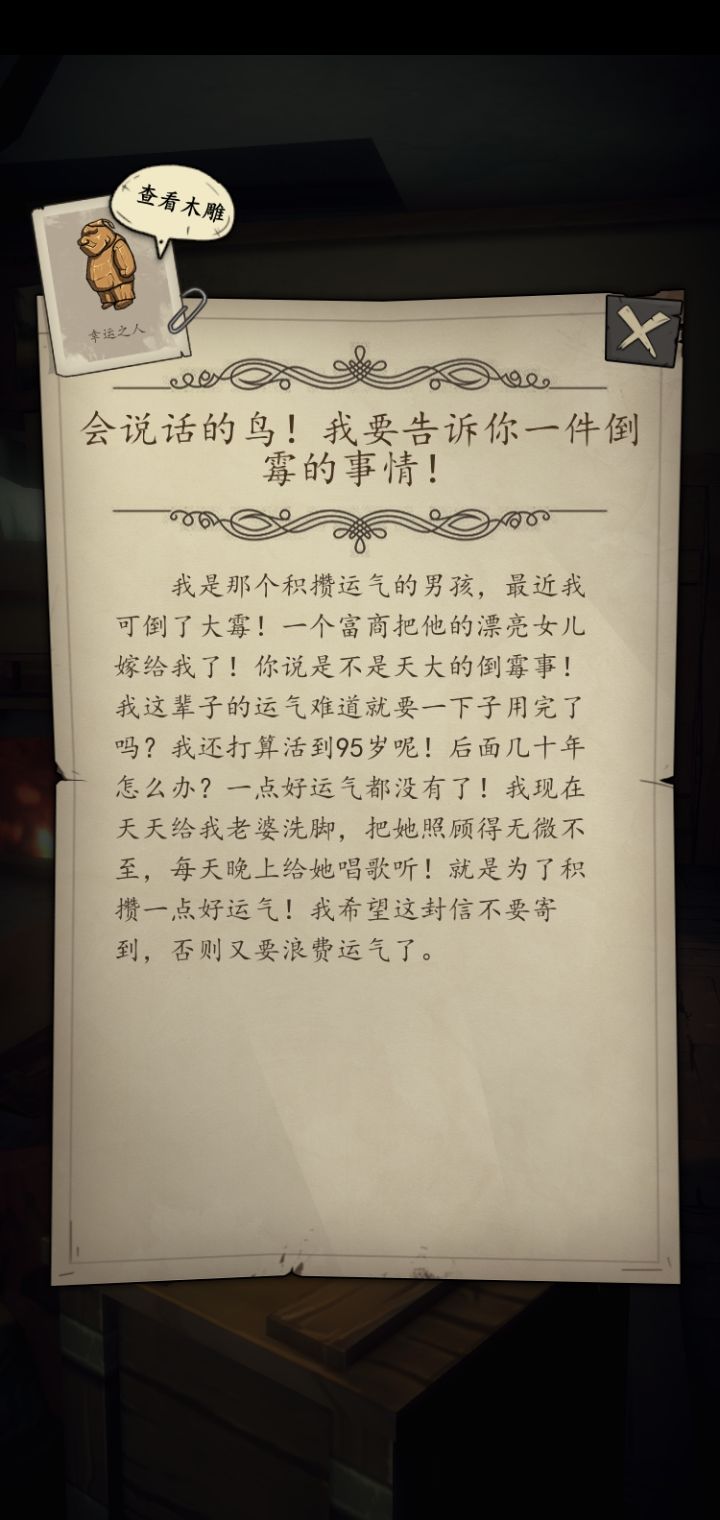 查看木雕
幸运之人
会说话的鸟！我要告诉你一件倒
霉的事情！
我是那个积攒运气的男孩，最近我
可倒了大霉！一个富商把他的漂亮女儿
嫁给我了！你说是不是天大的倒霉事！
我这辈子的运气难道就要一下子用完了
吗？我还打算活到95岁呢！后面几十年
怎么办？一点好运气都没有了！我现在
天天给我老婆洗脚，把她照顾得无微不
至，每天晚上给她唱歌听！就是为了积
攒一点好运气！我希望这封信不要寄
到，否则又要浪费运气了。